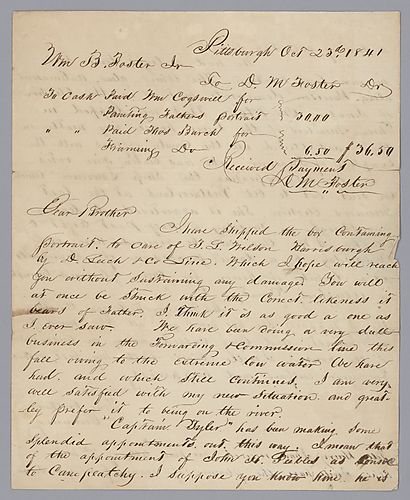 Pittsburgh Oct 23rd, 1841
Wm B. Foster Jr
To D. M Foster Dr
To Cash Paid Wm Cogswell for
Painting Fathers portrait 30.00
" " Paid Thos Burch for
Framing Do 6.50 $36.50
Received Payment
D M Foster
Dear Brother
I have shipped the box Containing
portrait, to care of T. T. Wilson Harrisburgh
by D Leech & Co Line. Which I hope will reach
you without sustaining any damage. You will
at once be struck with the Correct likeness it
bears of Father. I think it is as good a one as
I ever saw. We have been doing a very dull
business in the Forwarding & Commission line this
fall owing to the extreme low water We have
had. and which still continues. I am very
well satisfied with my new situation and great-
ly prefer it to being on the river.
"Captain Tyler" has been making some
splendid appointments out this way. I mean that
of the appointment of John H. as Consul
to Campeatchy. I suppose you know him. he is